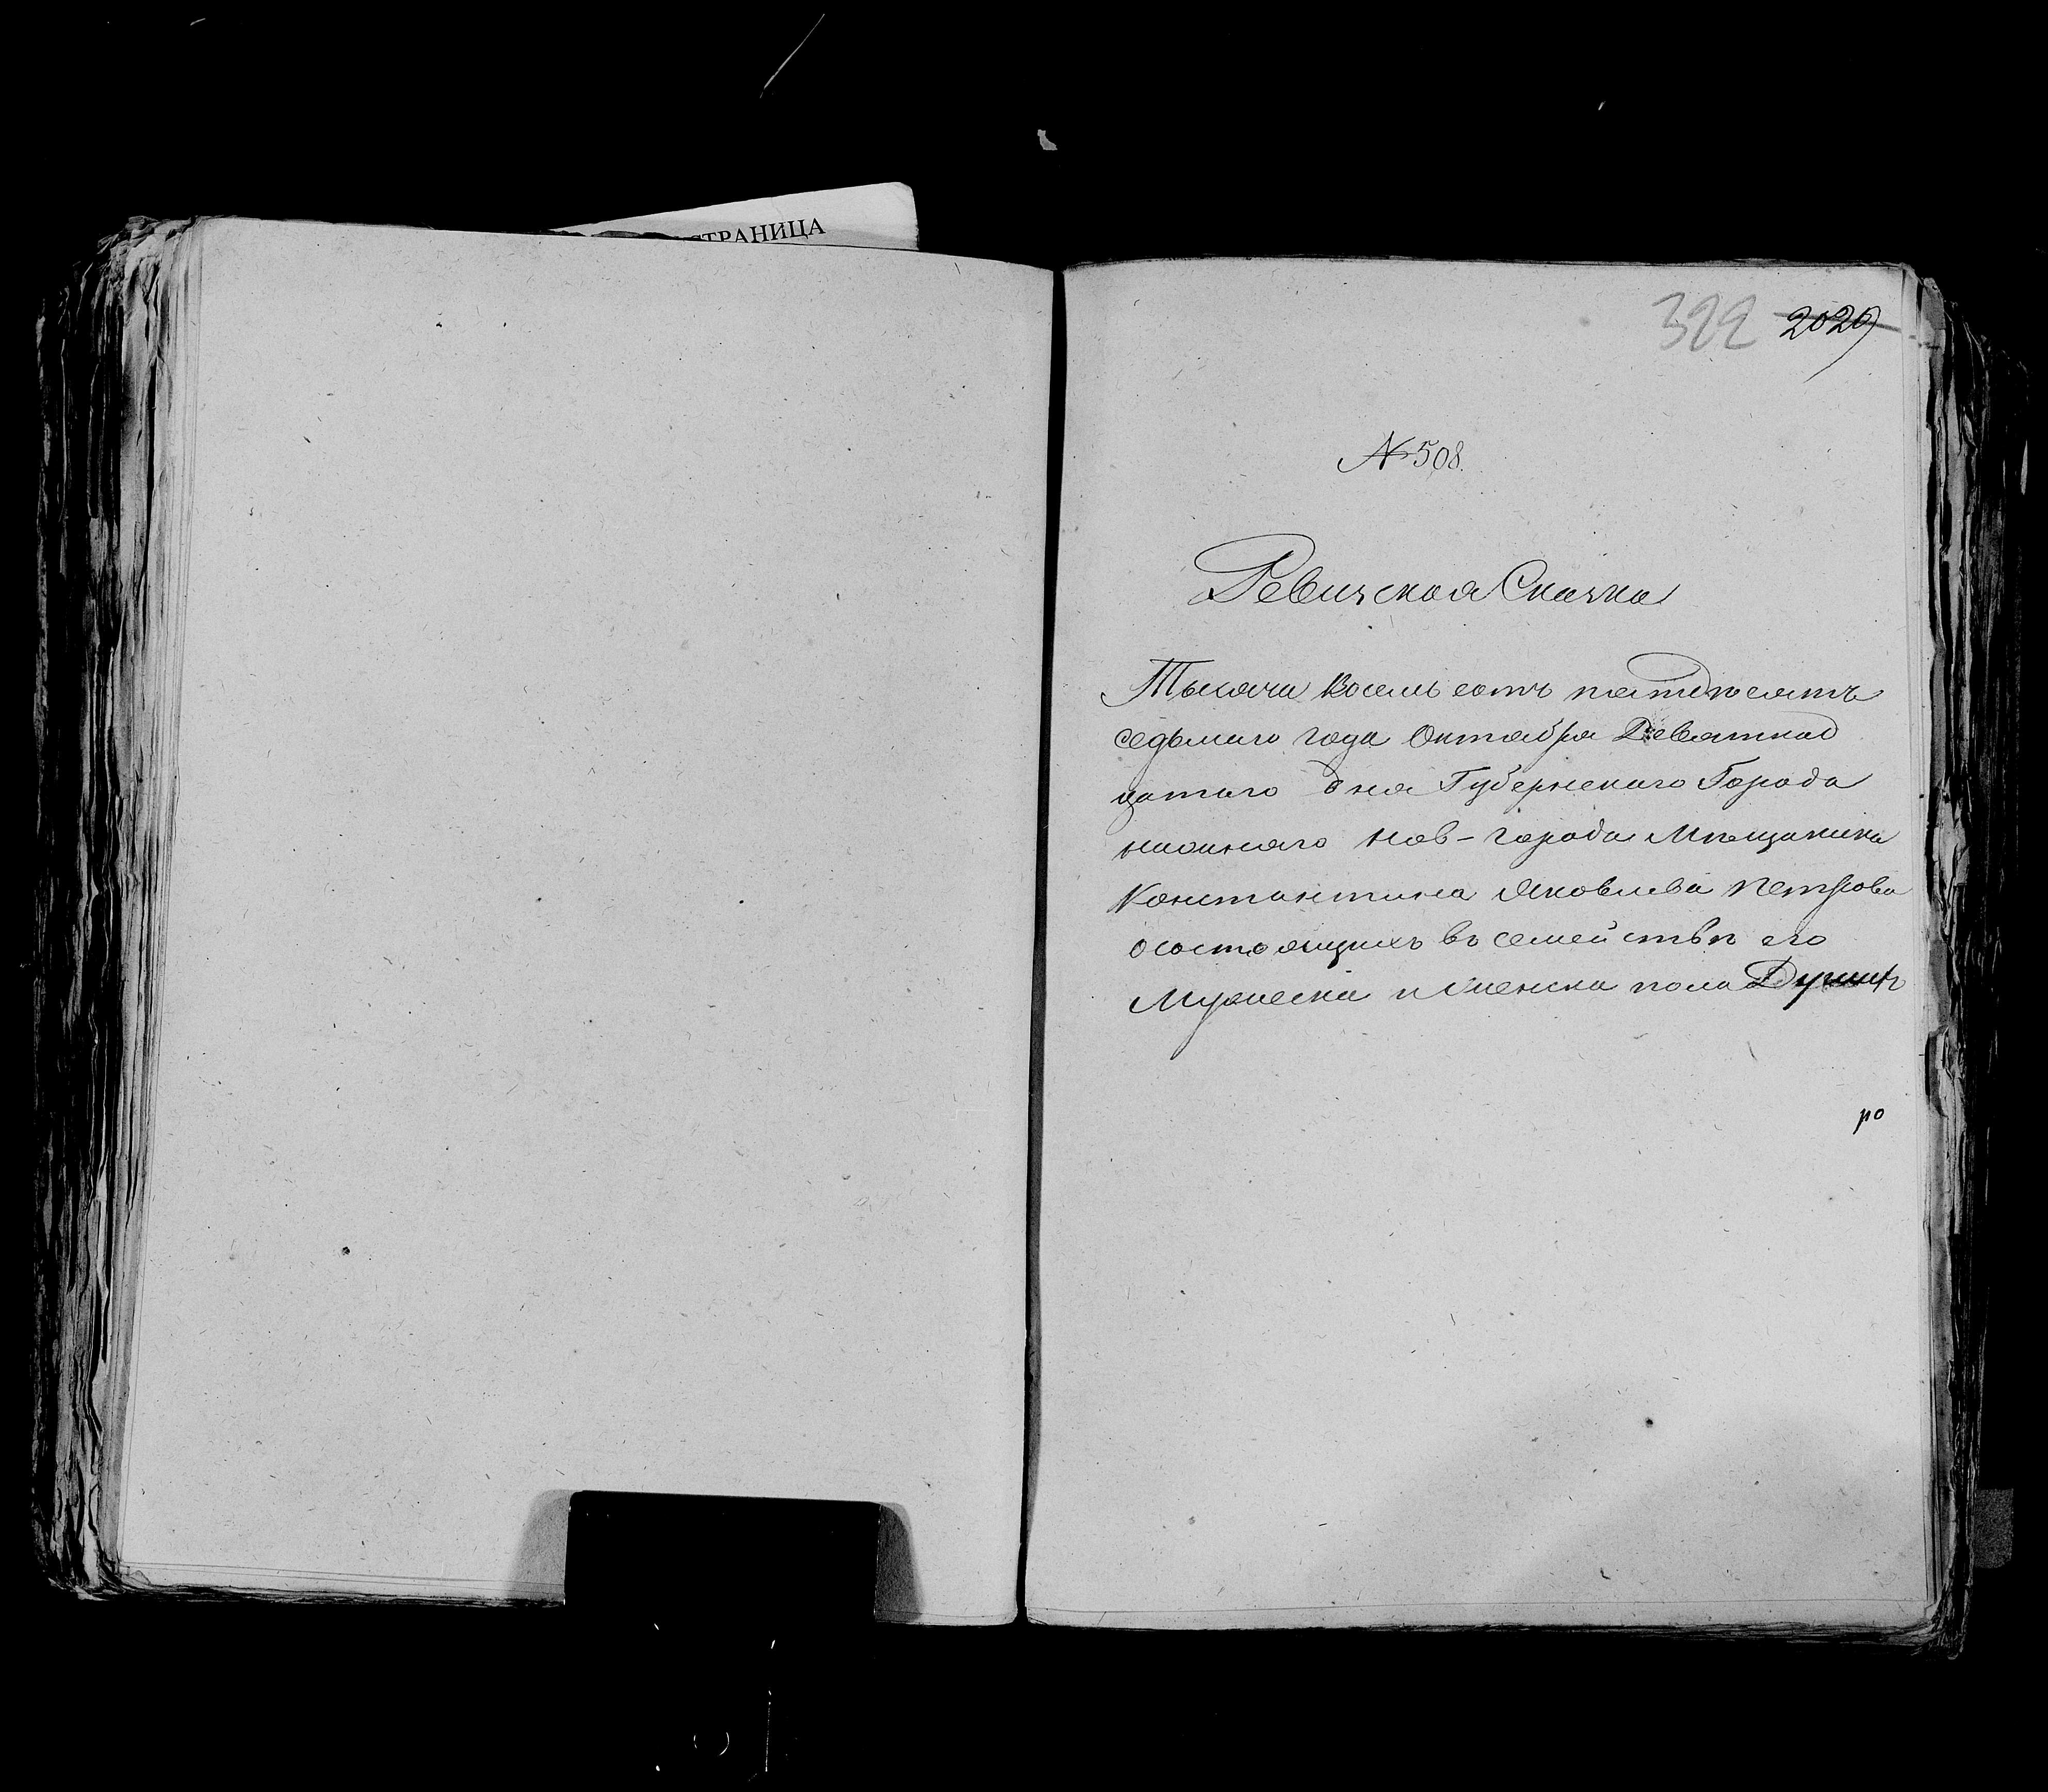 СТРАНИЦА
322 2029
№ 508.
Ревизская Сказка
Тысяча восемь сотъ пятдѣсятъ
седьмаго года Октября Девятнад
цатаго дня Губернскаго Города
нижняго нов-города Мѣщанина
Константина Яковлева Петрова
о состоящихъ въ семействѣ его
Мужеска и Женска пола Душъ
ро